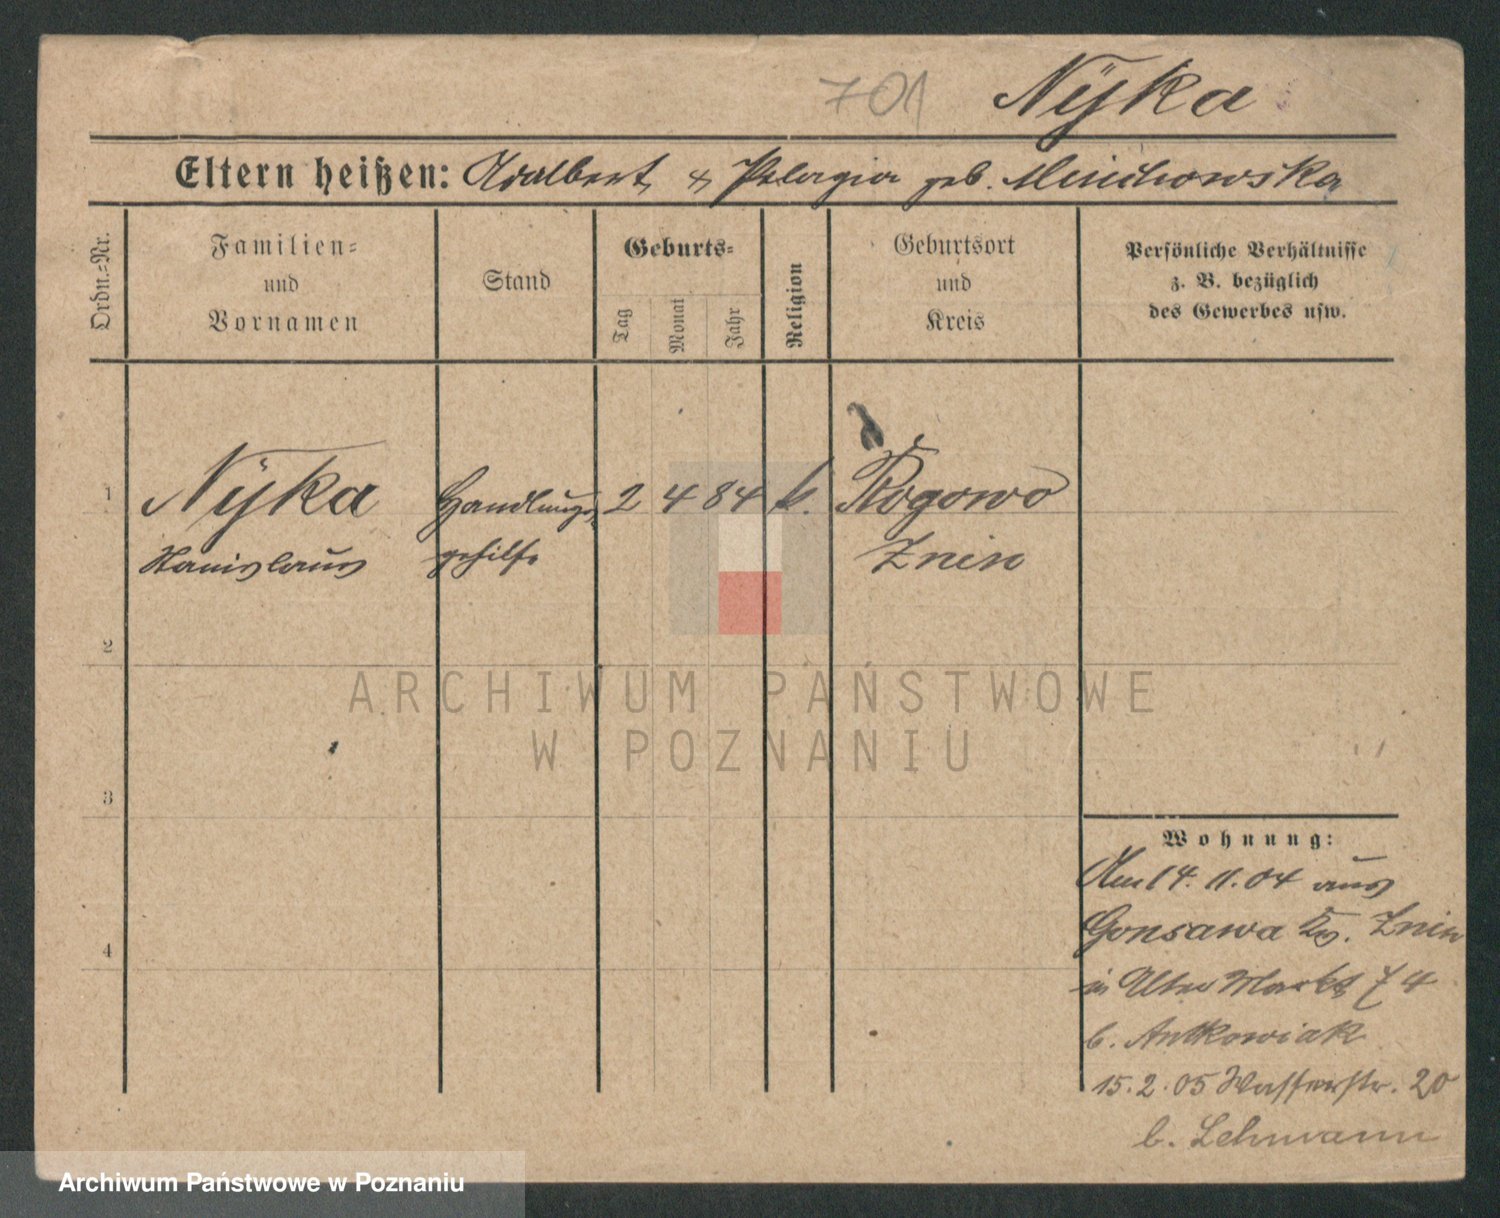 701 Nÿka
Eltern heißen: Adalbert & Pelagia geb. Muichowska
Ordn.=Nr.
Familien=
und
Vornamen
Stand
Geburts=
Tag
Monat
Jahr
Religion
Geburtsort
und
Kreis
Persönliche Verhältnisse
z. B. bezüglich
des Gewerbes usw.
1 Nÿka Handlungs 2 4 84 k. Rogowo
Stanislaus gehilfe Znin
2
3
4
Wohnung:
Am 14. 11. 04 aus
Gonsawa Krs. Znin
in Alter Markt 74
b. Antkowiak
15. 2. 05 Wasserstr. 20
b. Lehmann
ARCHIWUM PAŃSTWOWE
W POZNANIU
Archiwum Państwowe w Poznaniu